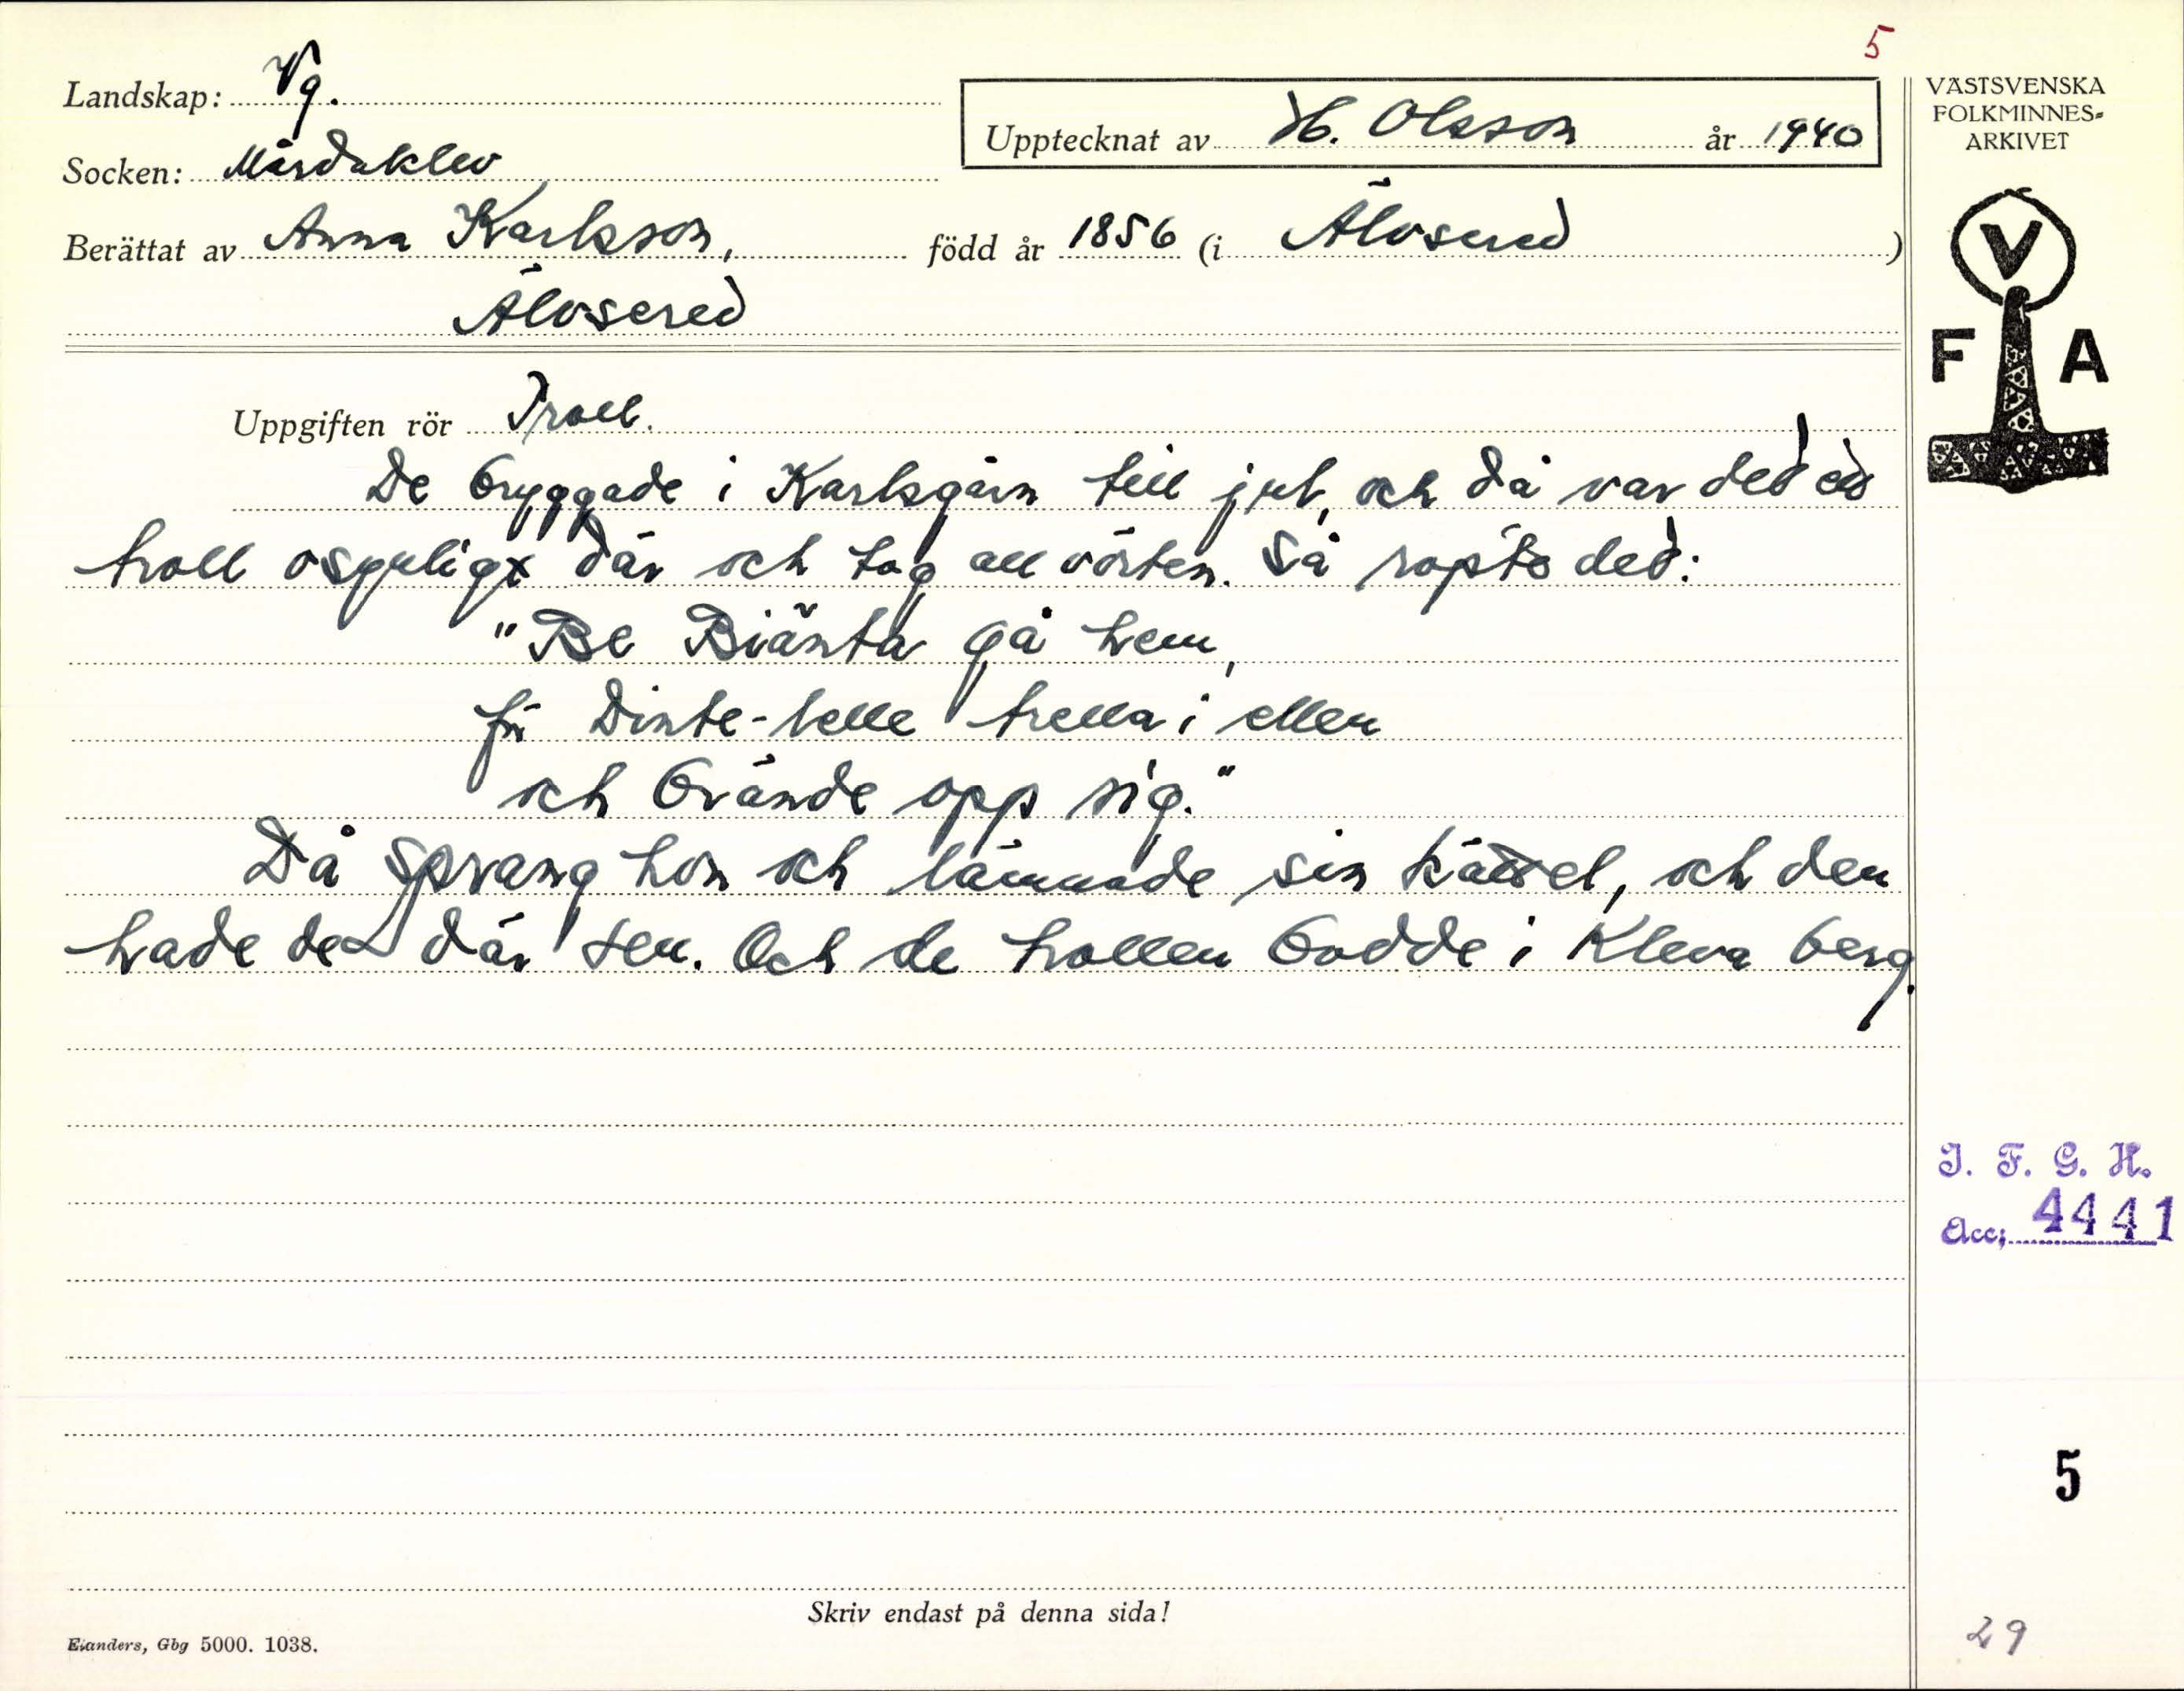 5
Landskap: Vg.
Upptecknat av H. Olsson år 1940
Socken: Mårdaklev
Berättat av Anna Karlsson, född år 1856 (i Älvsered)
Älvsered
Uppgiften rör Troll.
De bryggade i Karlsgårn till jul, och då var det ett
troll osynligt där och tog all vörten. Så ropte det:
"Be Biänta gå hem,
för Dinte-lelle trella i ellen
och brände opp sig."
Då sprang hon och lämnade sin kättel, och den
hade de där sen. Och de trollen bodde i Kleva berg.
Skriv endast på denna sida!
Elanders, Gbg 5000. 1038.
VÄSTSVENSKA
FOLKMINNES-
ARKIVET
V
F A
I. F. G. H.
Acc: 4441
5
29